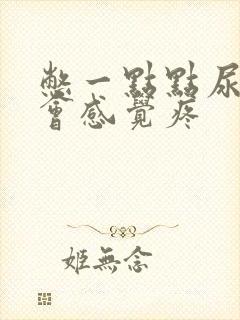 憋一點點尿
會感覺疼
姬無念